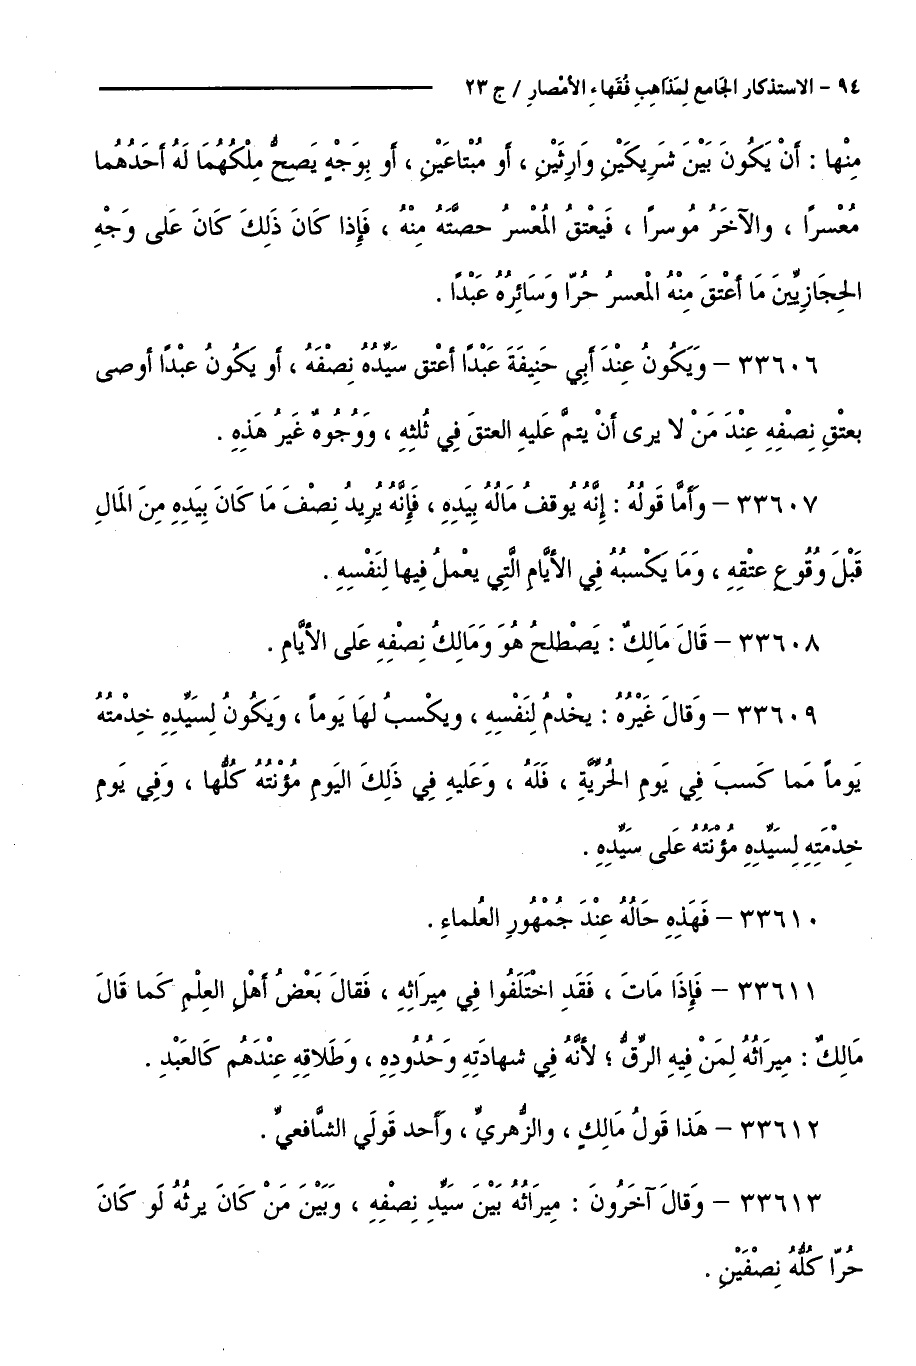 ٩٤ - الاستذكار الجَامع لِمَذاهِبِ فُقَهاءِ الأمْصارِ / ج ٢٣
مِنْها : أنْ يَكُونَ بَيْنَ شَرِيكَيْنِ وَارِثَيْنِ ، أو مُبْتاعَيْنِ ، أو بِوَجْهٍ يَصِحُّ مِلْكُهُمَا لَهُ أحَدُهُما
مُعْسراً ، والآخَرُ مُوسراً ، فَيعْتقُ المُعْسرُ حصَّتَهُ مِنْهُ ، فَإذا كانَ ذَلِكَ كَانَ عَلى وَجْهِ
الحِجَازِيِّينَ مَا أعْتقَ مِنْهُ المُعْسرُ حُرّا وَسَائِرُهُ عَبْدًا .
٣٣٦٠٦ - وَيَكُونُ عِنْدَ أبي حَنِيفَةَ عَبْدًا أعْتق سَيِّدُهُ نِصْفَهُ ، أو يَكُونُ عبْدًا أوصى
بعتْقِ نِصْفِهِ عِنْدَ مَنْ لا يرى أنْ يتمَّ عَليهِ العتقَ فِي ثُلثِهِ ، وَوُجُوهٌ غَيرُ هَذِهِ .
٣٣٦٠٧ - وَأمَّا قَولُهُ : إنَّهُ يُوقفُ مَالُهُ بِيَدِهِ ، فَإنَّهُ يُرِيدُ نِصْفَ مَا كَانَ بِيَدِهِ مِنَ المَالِ
قَبْلَ وُقُوعِ عتْقِهِ ، وَمَا يَكْسبُهُ فِي الأيَّامِ الَّتِي يعْملُ فِيها لِنَفْسِهِ .
٣٣٦٠٨ - قَالَ مَالِكٌ : يَصْطلحُ هُوَ وَمَالِكُ نِصْفِهِ عَلى الأيَّامِ .
٣٣٦٠٩ - وَقالَ غَيْرُهُ : يخْدمُ لِنَفْسِهِ ، ويكْسبُ لهَا يَوماً ، وَيَكُونُ لِسَيِّدِهِ خِدْمتُهُ
يَوماً مما كَسبَ فِي يَومِ الحُرِّيَّةِ ، فَلَهُ ، وَعَليهِ فِي ذَلِكَ اليَومِ مُؤْنَتُهُ كُلُّها ، وَفِي يَومِ
خِدْمَتِهِ لِسَيِّدِهِ مُؤْنَتُهُ عَلى سَيِّدِهِ .
٣٣٦١٠ - فَهَذِهِ حَالُهُ عِنْدَ جُمْهُورِ العُلماءِ .
٣٣٦١١ - فَإذَا مَاتَ ، فَقَدِ اخْتَلَفُوا فِي مِيرَاثِهِ ، فَقالَ بَعْضُ أهْلِ العِلْمِ كَما قَالَ
مَالِكٌ : مِيرَاثُهُ لِمَنْ فِيهِ الرِّقُّ ؛ لأنَّهُ فِي شهادَتِهِ وَحُدُودِهِ ، وَطَلاقِهِ عِنْدَهُم كَالعَبْدِ .
٣٣٦١٢ - هَذا قَولُ مَالِكٍ ، والزُّهريِّ ، وَأحد قَولَي الشَّافعيِّ .
٣٣٦١٣ - وَقالَ آخَرُونَ : مِيرَاثُهُ بَيْنَ سَيِّدِ نِصفِهِ ، وَبَيْنَ مَنْ كَانَ يرثُهُ لَو كَانَ
حُرّا كُلُّهُ نِصْفَيْنِ .